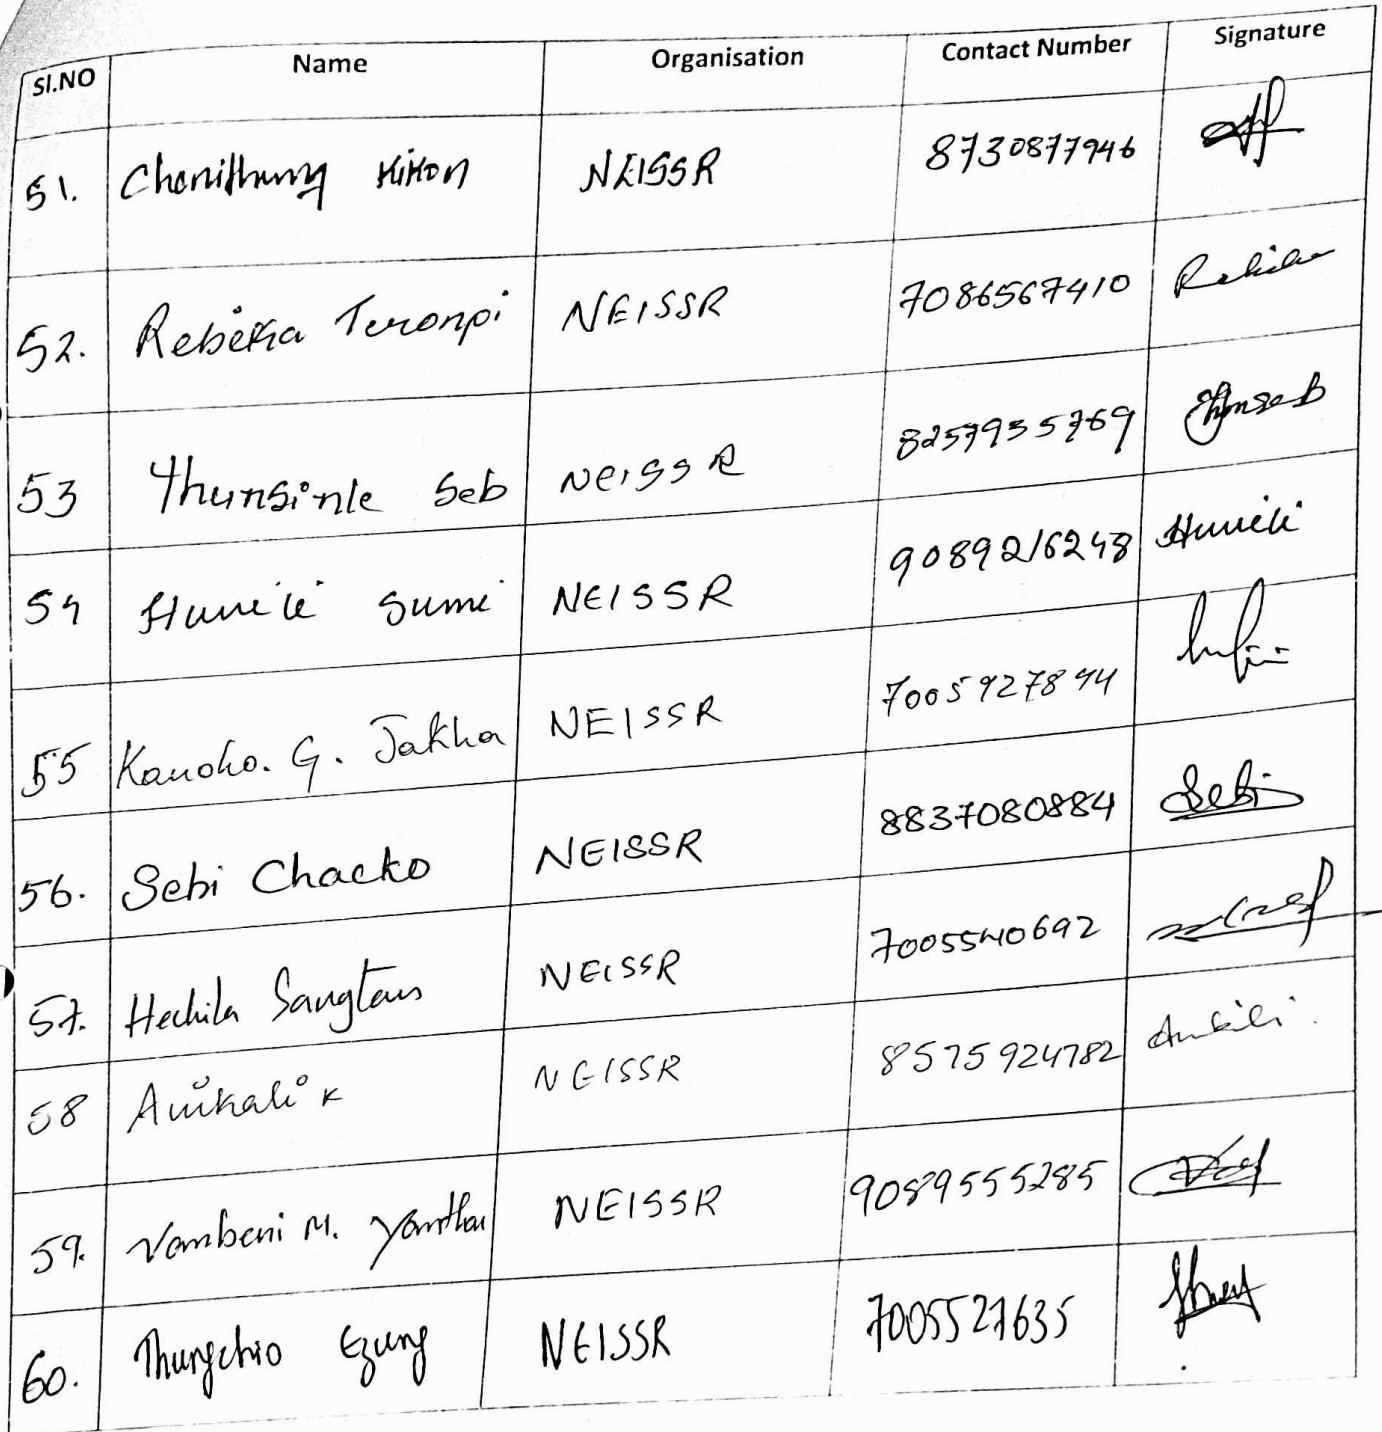 Sl.NO Name Organisation Contact Number Signature
51. Chonithung Kikon NEISSR 8730877946
52. Rebeka Teronpi NEISSR 7086567410
53 Thunsinle Seb NEISSR 8257935769
54 Sumi NEISSR 9089216248
55 G. Jakha NEISSR 7005927844
56. Sebi Chacko NEISSR 8837080884 Sebi
57. Hechila Sangtam NEISSR 7005540692
58 K NEISSR 8575924782
59. Vambeni M. Yanthan NEISSR 9089555285
60. Thungchio Ezung NEISSR 7005527635